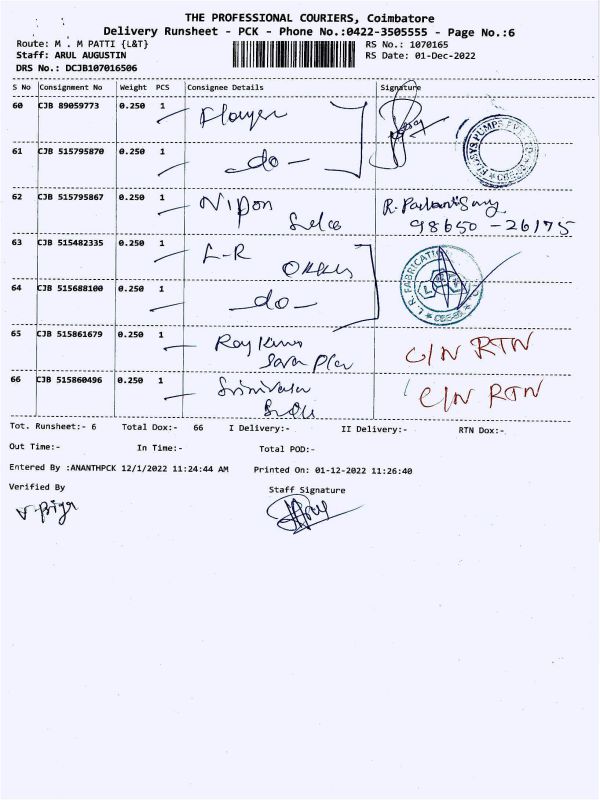 THE PROFESSIONAL COURIERS, Coimbatore
Delivery Runsheet - PCK - Phone No.:0422-3505555 - Page No.:6
Route: M . M PATTI {L&T}
RS No.: 1070165
Staff: ARUL AUGUSTIN
RS Date: 01-Dec-2022
DRS No.: DCJB107016506
S No Consignment No Weight PCS Consignee Details Signature
60 CJB 89059773 0.250 1
61 CJB 515795870 0.250 1 -do-
62 CJB 515795867 0.250 1 Nipon
98650-26175
63 CJB 515482335 0.250 1 L-R
64 CJB 515688100 0.250 1 -do-
L. R. FABRICATION
CBE-
65 CJB 515861679 0.250 1 C/N RTN
66 CJB 515860496 0.250 1 C/N RTN
Tot. Runsheet:- 6 Total Dox:- 66 I Delivery:- II Delivery:- RTN Dox:-
Out Time:- In Time:- Total POD:-
Entered By :ANANTHPCK 12/1/2022 11:24:44 AM Printed On: 01-12-2022 11:26:40
Verified By Staff Signature
V. Priya